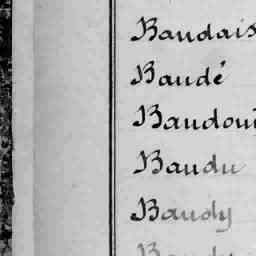 Baudais
Baudé
Baudoui
Baudu
Baudy